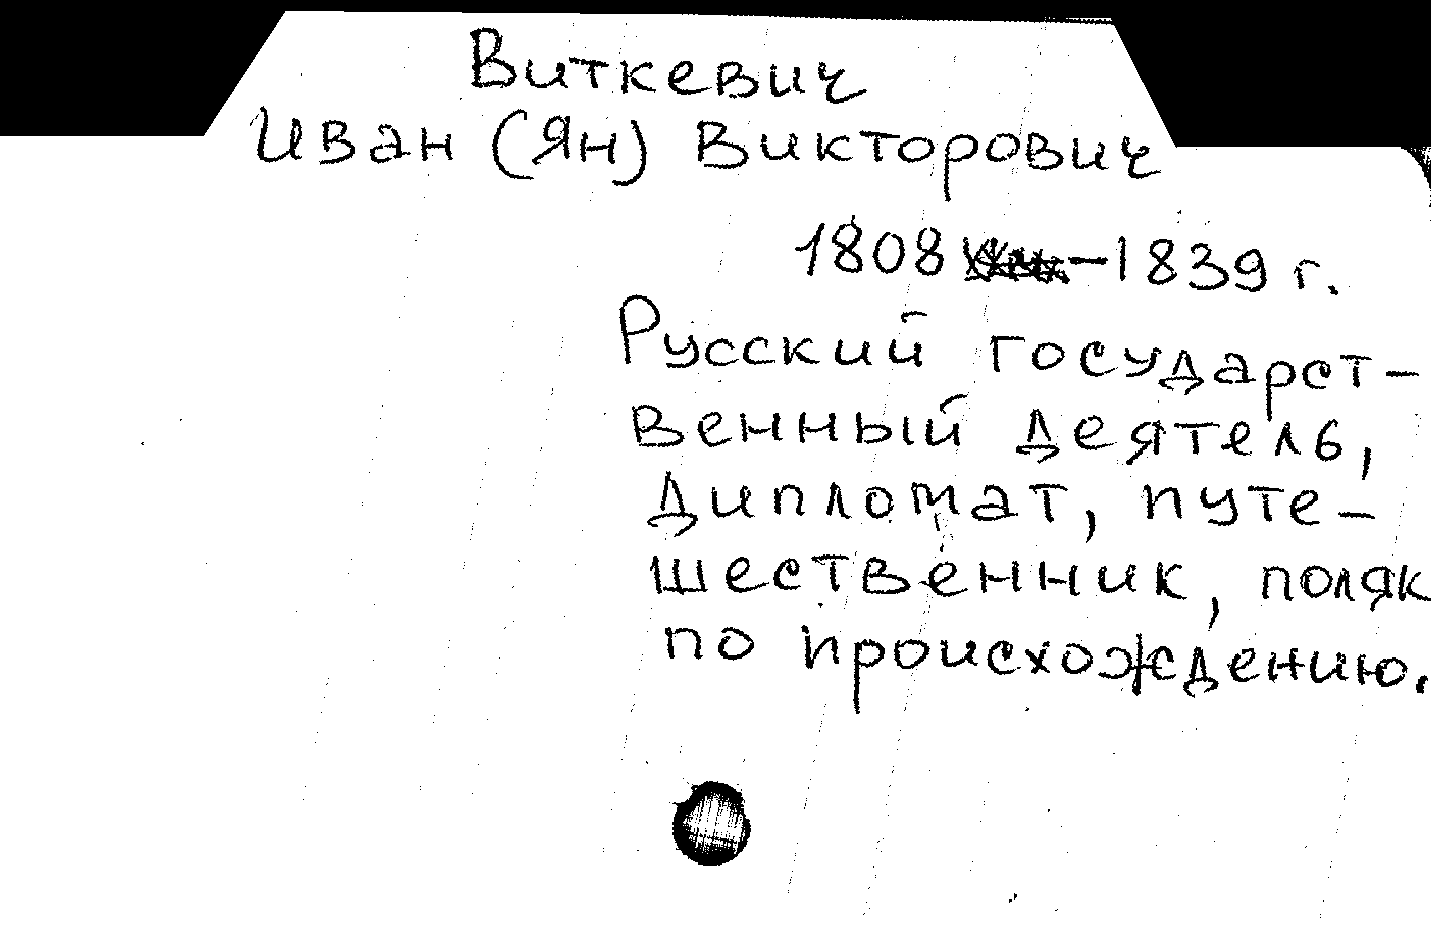 Виткевич
Иван (Ян) Викторович
1808 -1839 г.
Русский государст-
венный деятель,
дипломат, путе-
шественник, поляк
по происхождению.